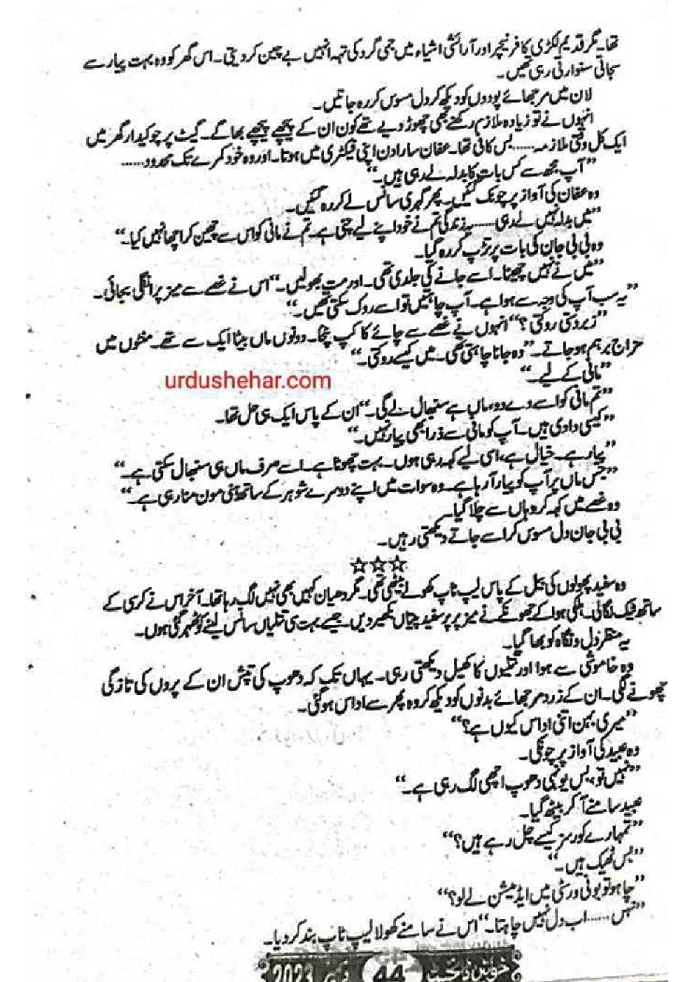 تھا۔ مگر قدیم لکڑی کا فرنیچر اور آرائشی اشیاء میں جمی گرد کی تہہ انہیں بے چین کر دیتی۔ اس گھر کو وہ بہت پیار سے
سجاتی سنوارتی رہی تھیں۔
لان میں مرجھائے پودوں کو دیکھ کر دل مسوس کر رہ جاتیں۔
انہوں نے تو زیادہ ملازم رکھنے بھی چھوڑ دیے تھے کون ان کے پیچھے پیچھے بھاگے۔ گیٹ پر چوکیدار گھر میں
ایک کل وقتی ملازمہ ...... بس کافی تھا۔ عفان سارا دن اپنی فیکٹری میں ہوتا۔ اور وہ خود کمرے تک محدود ......
”آپ مجھ سے کس بات کا بدلہ لے رہی ہیں۔“
وہ عفان کی آواز پر چونک گئیں۔ پھر گہری سانس لے کر رہ گئیں۔
”میں بدلہ نہیں لے رہی ...... یہ زندگی تم نے خود اپنے لیے چنی ہے۔ تم نے مانی کو اس سے چھین کر اچھا نہیں کیا۔“
وہ بی بی جان کی بات پر تڑپ کر رہ گیا۔
”میں نے نہیں چھینا۔ اسے جانے کی جلدی تھی۔ اور مت بھولیں۔“ اس نے غصے سے میز پر انگلی بجائی۔
”یہ سب آپ کی وجہ سے ہوا ہے۔ آپ چاہتیں تو اسے روک سکتی تھیں۔“
”زبردستی روکتی؟“ انہوں نے غصے سے چائے کا کپ پٹخا۔ دونوں ماں بیٹا ایک سے تھے۔ منٹوں میں
مزاج برہم ہو جاتے۔ ”وہ جانا چاہتی تھی۔ میں کیسے روکتی۔“
”مانی کے لیے۔“
urdushehar.com
”تم مانی کو اسے دے دو، ماں ہے سنبھال لے گی۔“ ان کے پاس ایک ہی حل تھا۔
”کیسی دادی ہیں۔ آپ کو مانی سے ذرا بھی پیار نہیں۔“
”پیار ہے۔ خیال ہے، اسی لیے کہہ رہی ہوں۔ بہت چھوٹا ہے۔ اسے صرف ماں ہی سنبھال سکتی ہے۔“
”جس ماں پر آپ کو پیار آ رہا ہے۔ وہ سوات میں اپنے دوسرے شوہر کے ساتھ ہنی مون منا رہی ہے۔“
وہ غصے میں کہہ کر وہاں سے چلا گیا۔
بی بی جان دل مسوس کر اسے جاتے دیکھتی رہیں۔
☆☆☆
وہ سفید پھولوں کی بیل کے پاس لیپ ٹاپ کھولے بیٹھی تھی۔ مگر دھیان کہیں بھی نہیں لگ رہا تھا۔ آخر اس نے کرسی کے
ساتھ ٹیک لگائی۔ ہلکی ہوا کے جھونکے نے میز پر سفید پتیاں بکھیر دیں۔ جیسے بہت سی تتلیاں سانس لینے کو ٹھہر گئی ہوں۔
یہ منظر دل و نگاہ کو بھا گیا۔
وہ خاموشی سے ہوا اور تتلیوں کا کھیل دیکھتی رہی۔ یہاں تک کہ دھوپ کی تپش ان کے پروں کی تازگی
چھونے لگی۔ ان کے زرد مرجھائے بدنوں کو دیکھ کر وہ پھر سے اداس ہو گئی۔
”میری بہن اتنی اداس کیوں ہے؟“
وہ عبید کی آواز پر چونکی۔
”نہیں تو، بس یونہی دھوپ اچھی لگ رہی ہے۔“
عبید سامنے آ کر بیٹھ گیا۔
”تمہارے کورسز کیسے چل رہے ہیں؟“
”بس ٹھیک ہیں۔“
”چاہو تو یونی ورسٹی میں ایڈمیشن لے لو؟“
”نہیں ...... اب دل نہیں چاہتا۔“ اس نے سامنے کھولا لیپ ٹاپ بند کر دیا۔
خواتین ڈائجسٹ 44 2023